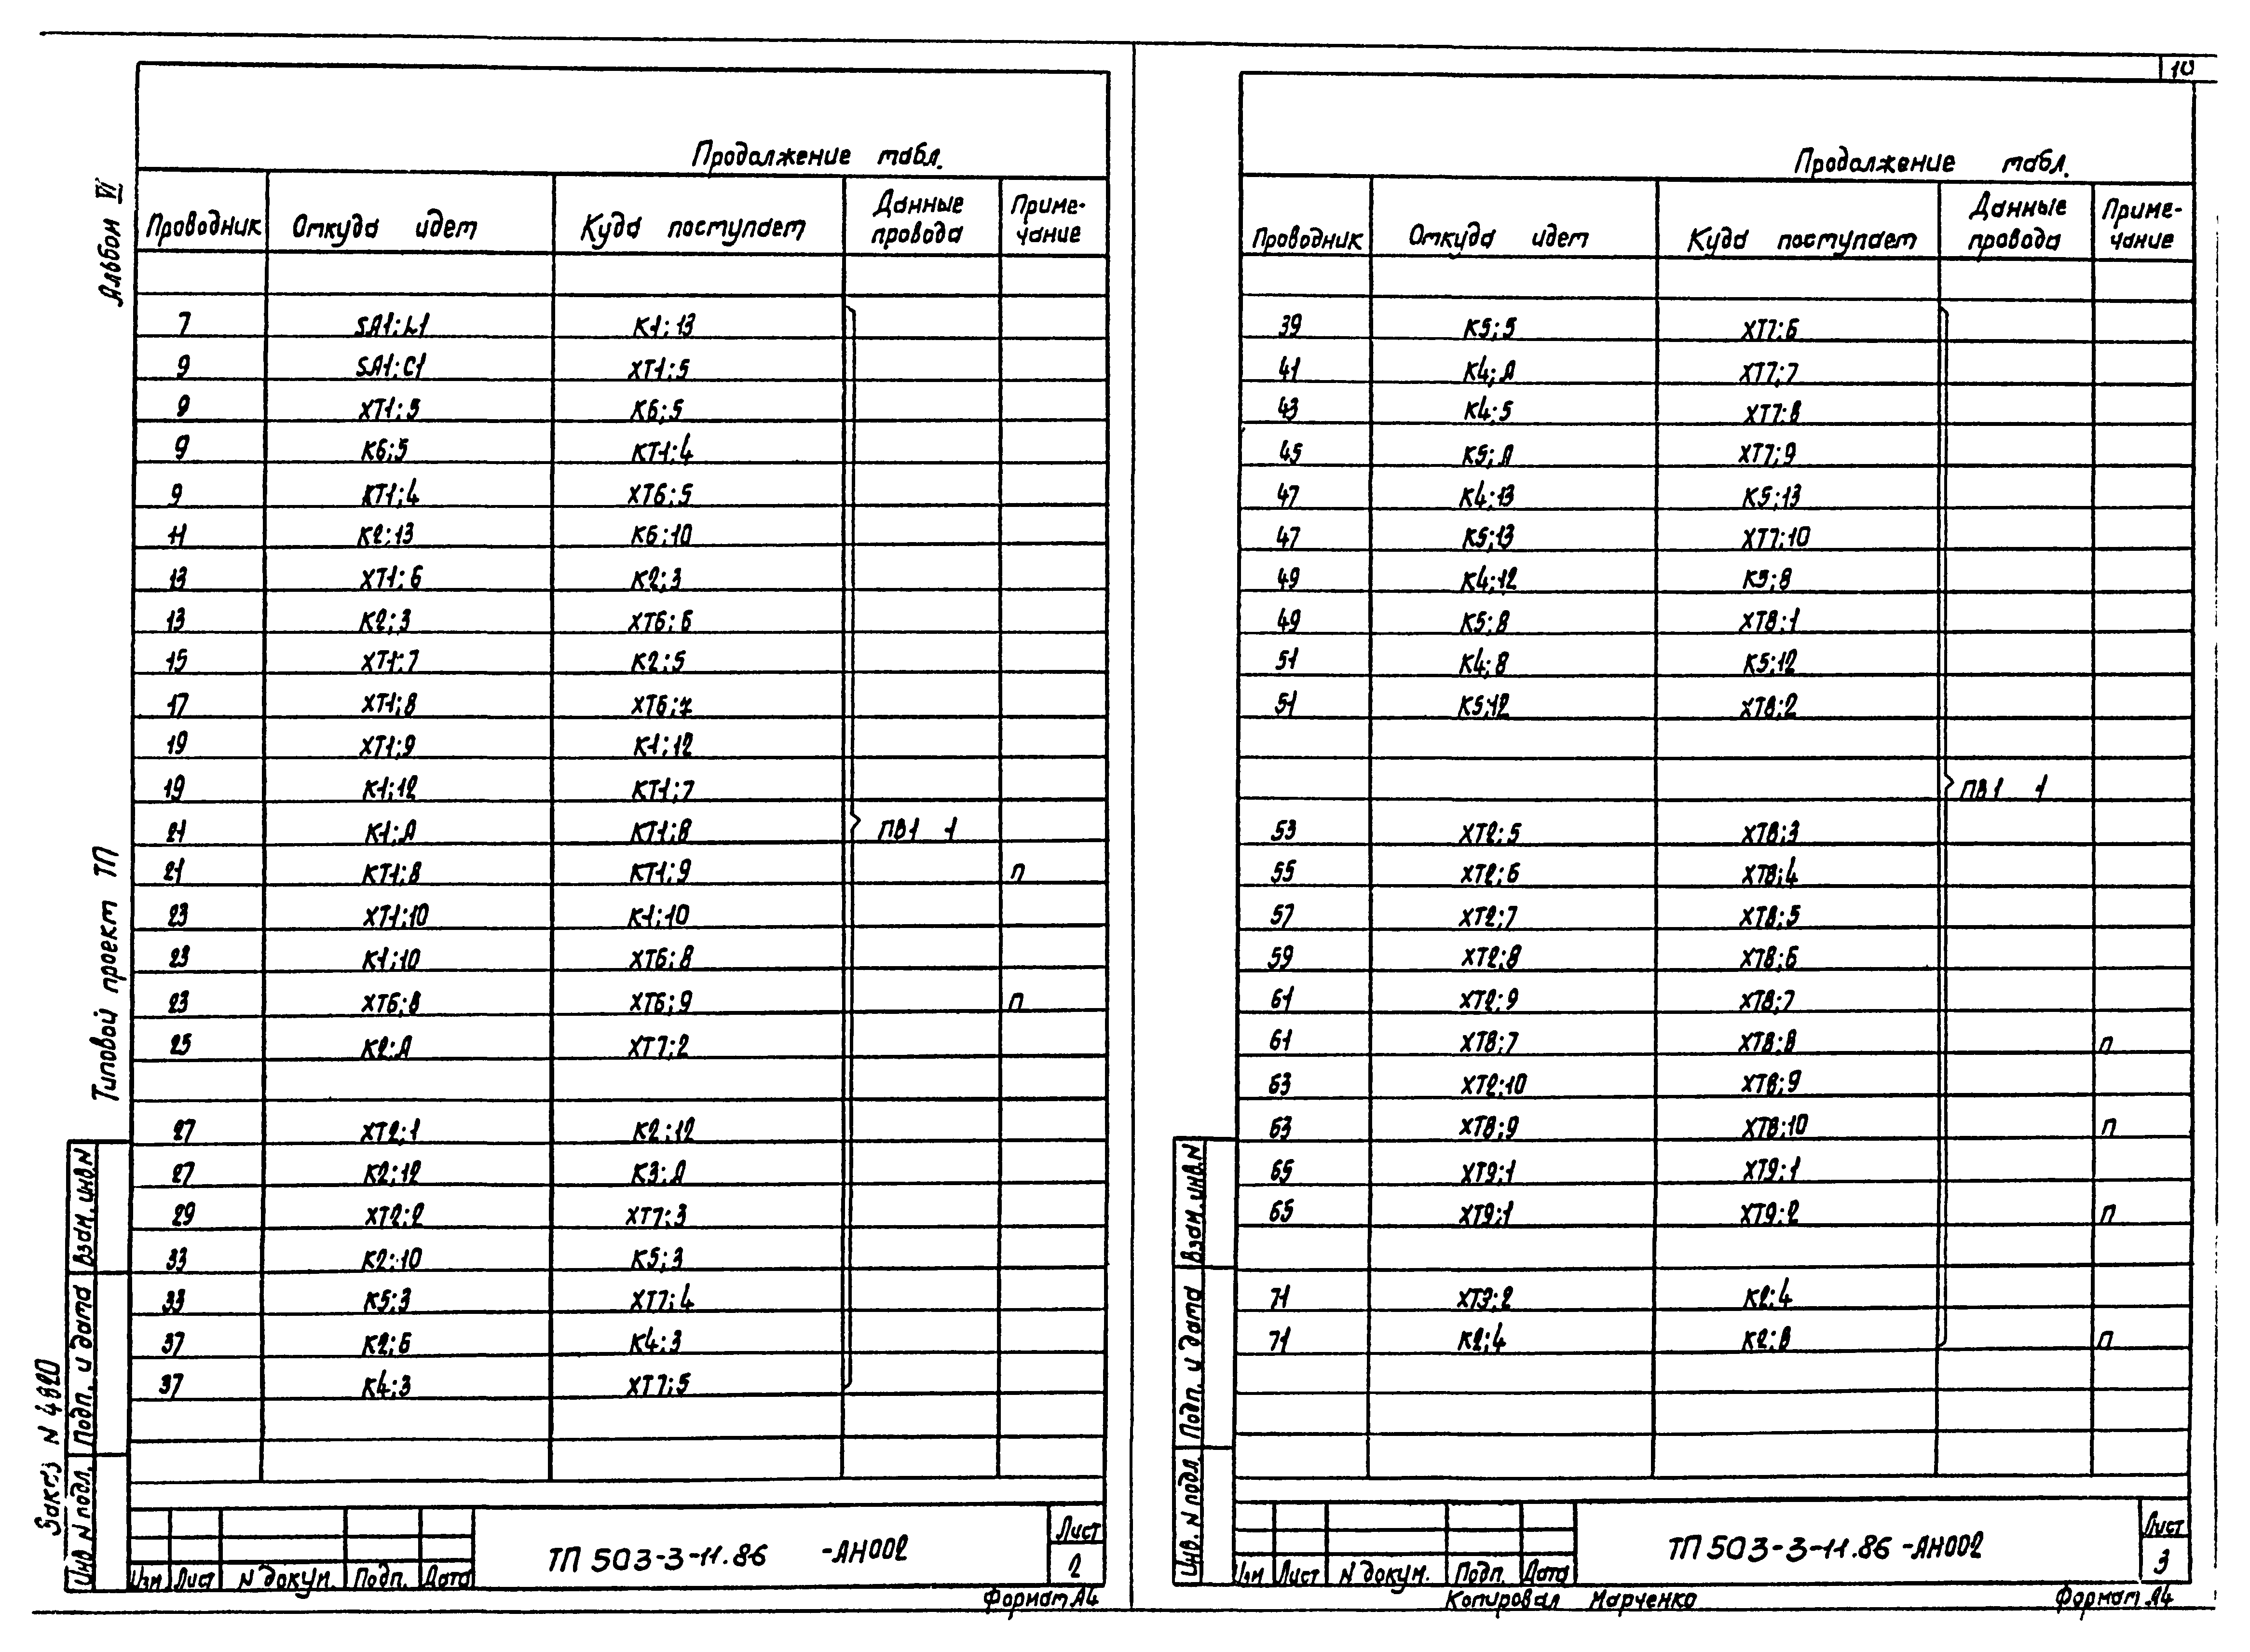 10
Альбом VI
Типовой проект ТП
Заказ N 4820
Взам. инв. N
Подп. и дата
Инв N подл.
Продолжение табл.
Проводник Откуда идет Куда поступает Данные провода Примечание
7 SA1;L1 K1;13
9 SA1;C1 XT1;5
9 XT1;5 K6;5
9 K6;5 KT1;4
9 KT1;4 XT6;5
11 K2;13 K6;10
13 XT1;6 K2;3
13 K2;3 XT6;6
15 XT1;7 K2;5
17 XT1;8 XT6;7
19 XT1;9 K1;12
19 K1;12 KT1;7
21 K1;A KT1;8 ПВ1 1
21 KT1;8 KT1;9 п
23 XT1;10 K1;10
23 K1;10 XT6;8
23 XT6;8 XT6;9 п
25 K2;A XT7;2
27 XT2;1 K2;12
27 K2;12 K3;A
29 XT2;2 XT7;3
33 K2;10 K5;3
33 K5;3 XT7;4
37 K2;6 K4;3
37 K4;3 XT7;5
Изм Лист N докум. Подп. Дата
ТП 503-3-11.86 -АН002
Лист
2
Формат А4
Взам. инв. N
Подп. и дата
Инв. N подл.
Продолжение табл.
Проводник Откуда идет Куда поступает Данные провода Примечание
39 K5;5 XT7;6
41 K4;A XT7;7
43 K4;5 XT7;8
45 K5;A XT7;9
47 K4;13 K5;13
47 K5;13 XT7;10
49 K4;12 K5;8
49 K5;8 XT8;1
51 K4;8 K5;12
51 K5;12 XT8;2
ПВ1 1
53 XT2;5 XT8;3
55 XT2;6 XT8;4
57 XT2;7 XT8;5
59 XT2;8 XT8;6
61 XT2;9 XT8;7
61 XT8;7 XT8;8 п
63 XT2;10 XT8;9
63 XT8;9 XT8;10 п
65 XT9;1 XT9;1
65 XT9;1 XT9;2 п
71 XT3;2 K2;4
71 K2;4 K2;B п
Изм Лист N докум. Подп. Дата
ТП 503-3-11.86 -АН002
Лист
3
Копировал Марченко
Формат А4